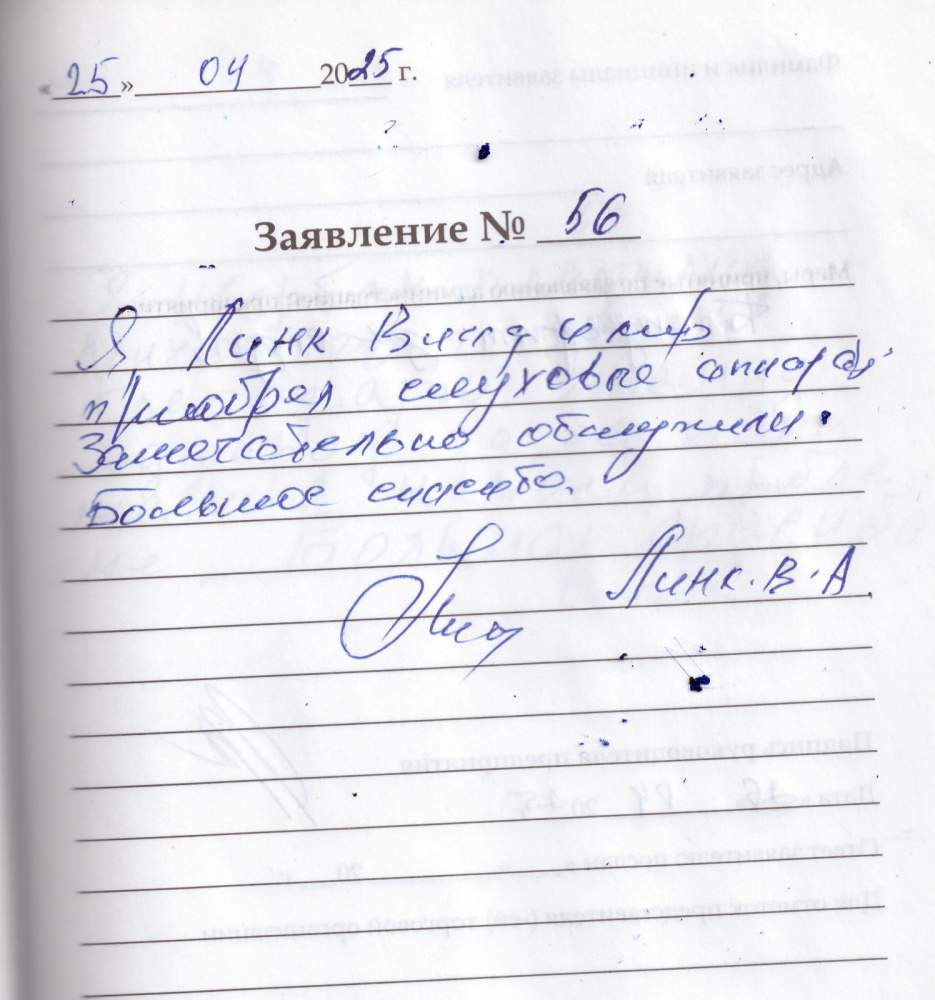 « 25 » 04 2025 г.
Заявление № 56
Я Линк Владимир
приобрел слуховые аппараты
Замечательно обслужили.
Большое спасибо.
Линк. В. А.